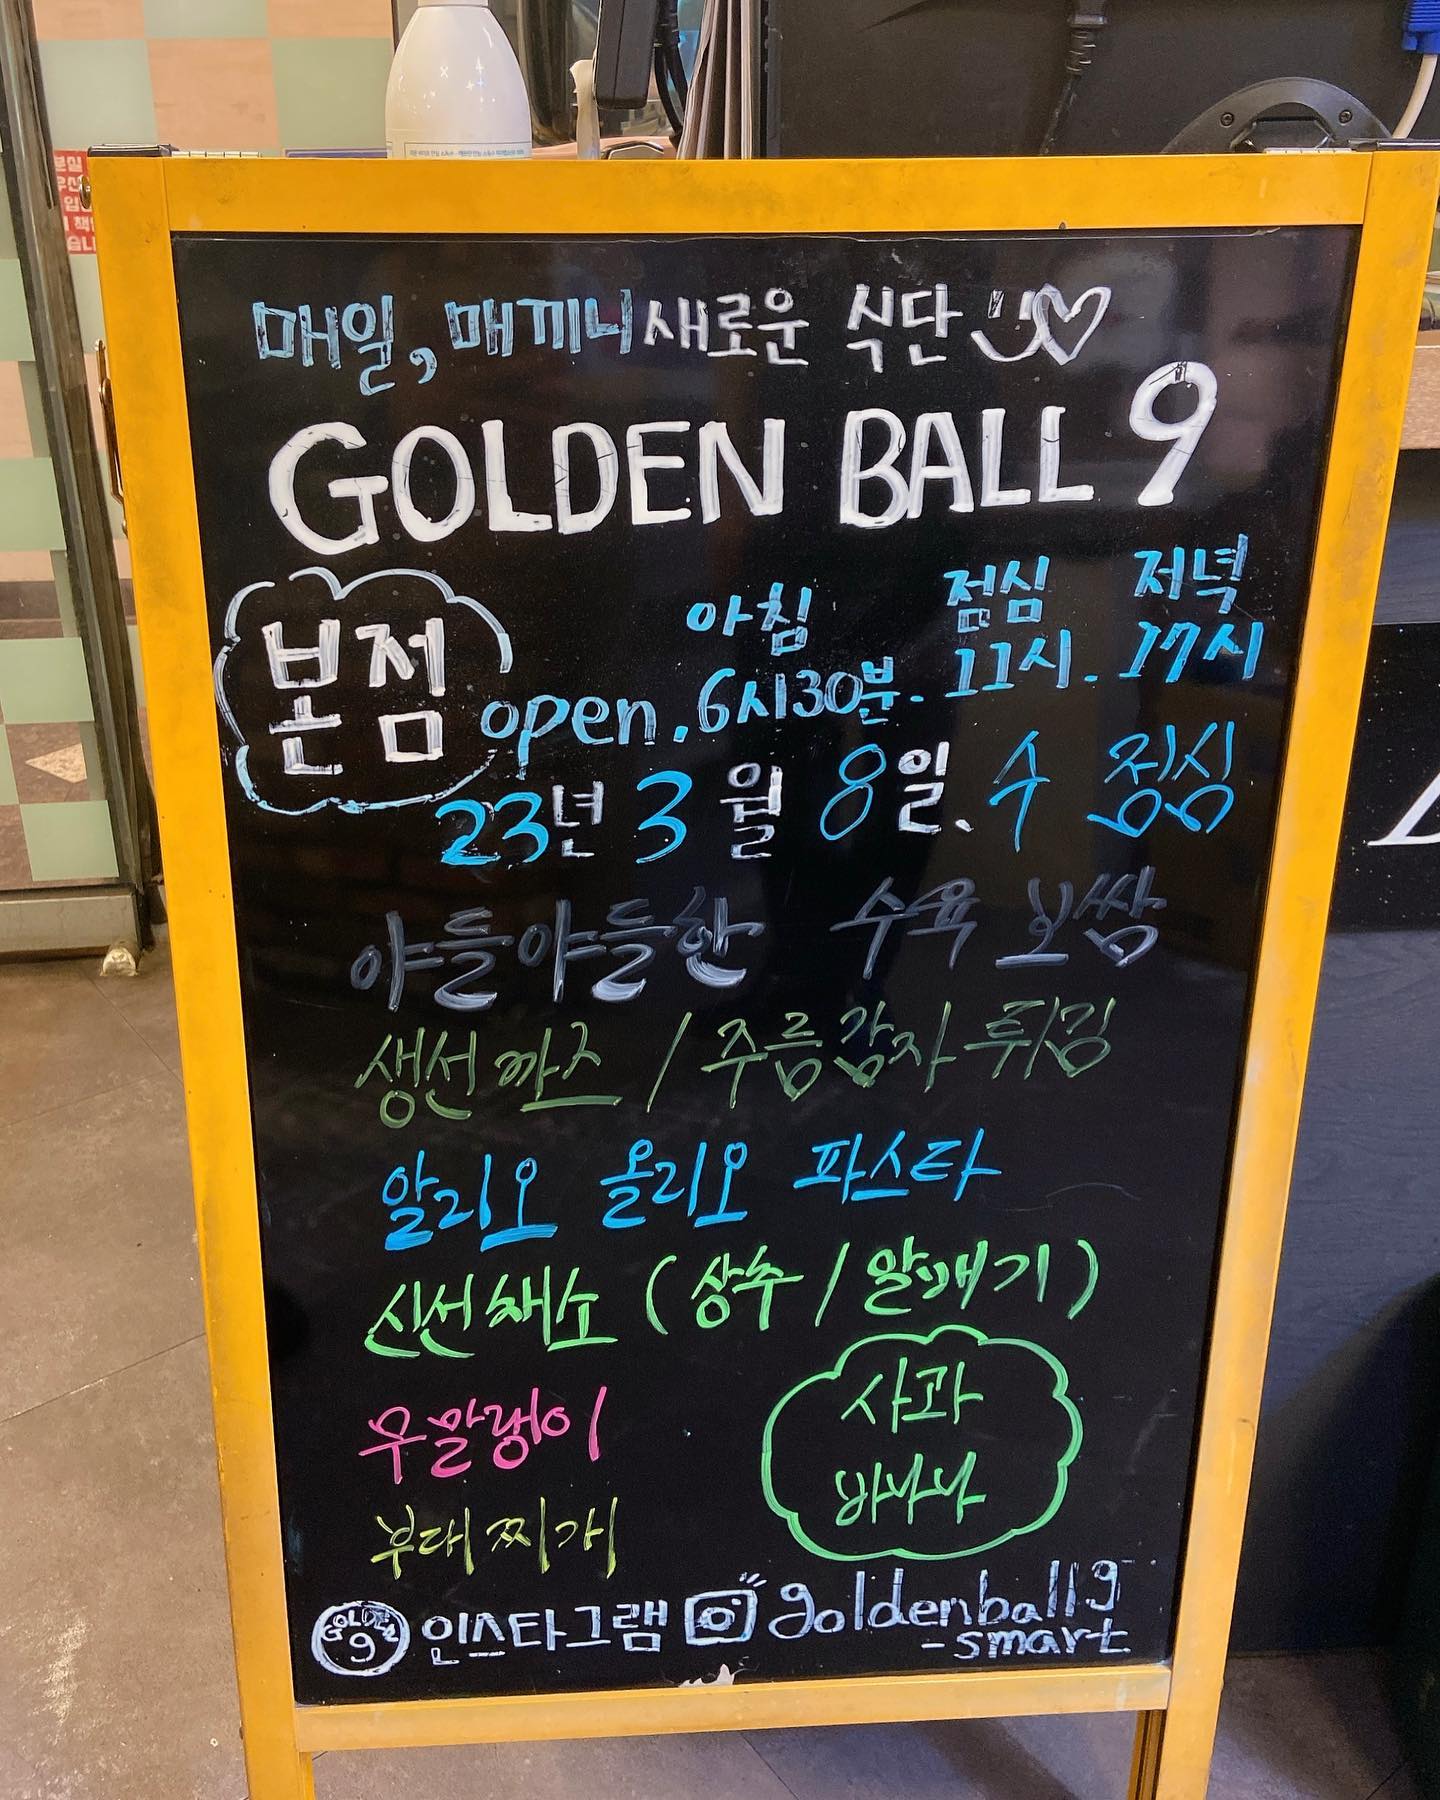 매일, 매끼니 새로운 식단
GOLDEN BALL 9
본점
아침 점심 저녁
open. 6시30분. 11시. 17시
23년 3월 8일. 수 점심
야들야들한 수육 보쌈
생선까스 / 주름감자 튀김
알리오 올리오 파스타
신선채소 (상추 / 알배기)
무말랭이
사과
바나나
부대찌개
GOLDEN
9
인스타그램 goldenball9
-smart